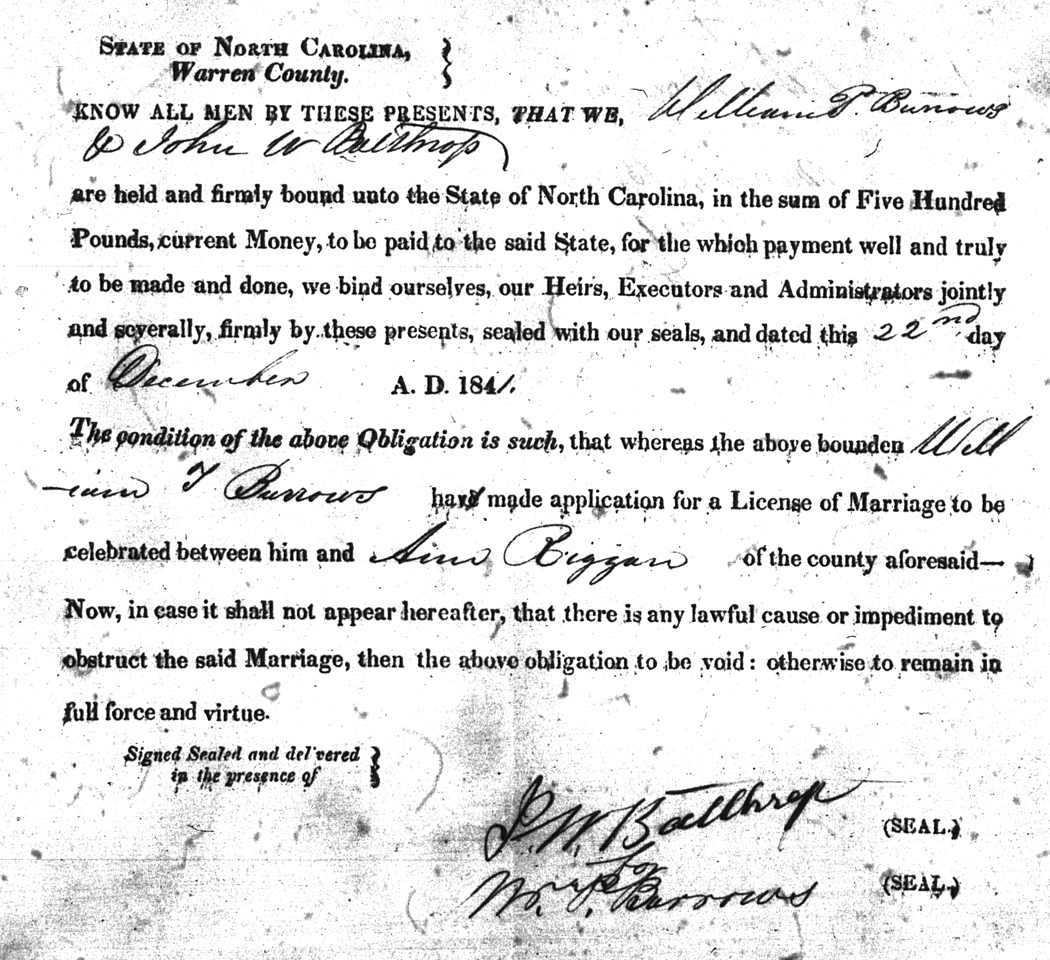 STATE OF NORTH CAROLINA,
Warren County.
KNOW ALL MEN BY THESE PRESENTS, THAT WE, William P. Burrows
& John W Balthrop
are held and firmly bound unto the State of North Carolina, in the sum of Five Hundred
Pounds, current Money, to be paid to the said State, for the which payment well and truly
to be made and done, we bind ourselves, our Heirs, Executors and Administrators jointly
and severally, firmly by these presents, sealed with our seals, and dated this 22nd day
of December A. D. 1841.
The condition of the above Obligation is such, that whereas the above bounden Will
-iam T Burrows has made application for a License of Marriage to be
celebrated between him and Ann Riggan of the county aforesaid—
Now, in case it shall not appear hereafter, that there is any lawful cause or impediment to
obstruct the said Marriage, then the above obligation to be void: otherwise to remain in
full force and virtue.
Signed Sealed and del'vered
in the presence of
J. W. Balthrop (SEAL.)
for
Wm. P. Burrows (SEAL.)